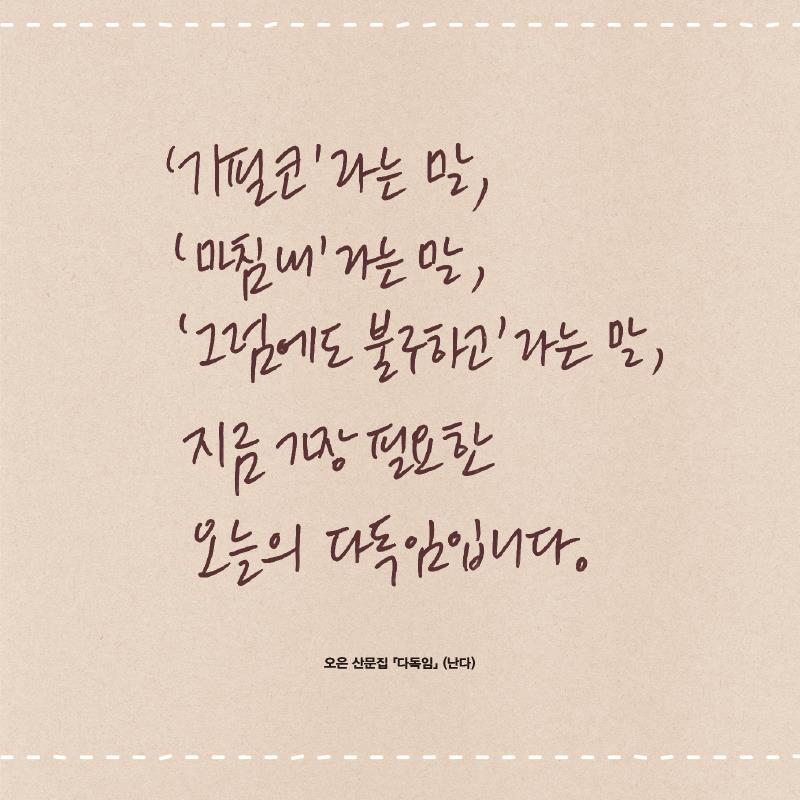 '기필코'라는 말,
'마침내'라는 말,
'그럼에도 불구하고'라는 말,
지금 가장 필요한
오늘의 다독임입니다.
오은 산문집 『다독임』 (난다)